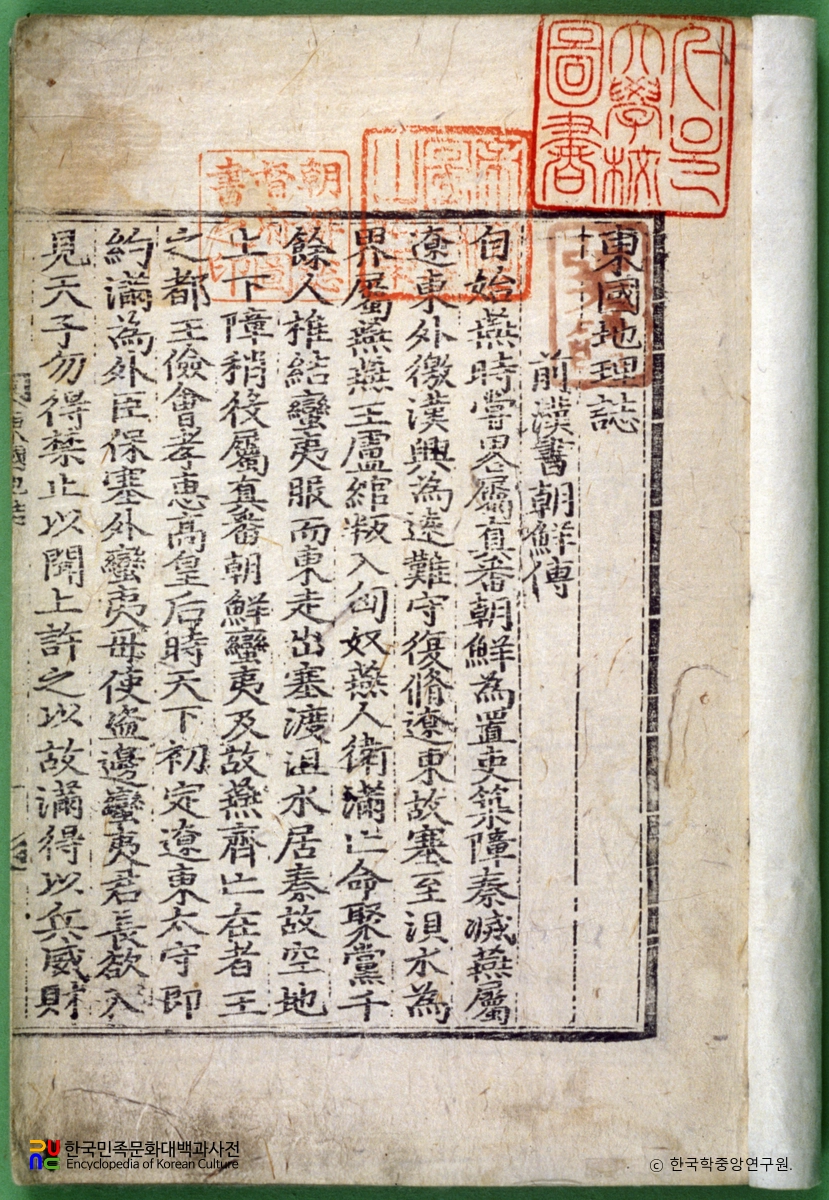 서울
大學校
圖書
朝鮮總
督府圖
書之印
東國地理誌
前漢書朝鮮傳
自始燕時嘗畧屬真番朝鮮為置吏築障秦滅燕屬
遼東外徼漢興為遠難守復脩遼東故塞至浿水為
界屬燕燕王盧綰叛入匈奴燕人衛滿亡命聚黨千
餘人椎結蠻夷服而東走出塞渡沮水居秦故空地
上下障稍役屬真番朝鮮蠻夷及故燕齊亡在者王
之都王儉會孝惠高皇后時天下初定遼東太守即
約滿為外臣保塞外蠻夷毋使盜邊蠻夷君長欲入
見天子勿得禁止以聞上許之以故滿得以兵威財
한국민족문화대백과사전
Encyclopedia of Korean Culture
© 한국학중앙연구원.